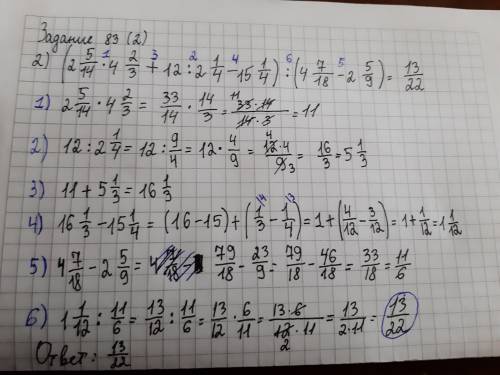 Задание 83 (2)
2) (2 5/14 · 4 2/3 + 12 : 2 1/4 − 15 1/4) : (4 7/18 − 2 5/9) = 13/22
1) 2 5/14 · 4 2/3 = 33/14 · 14/3 = 33·14/14·3 = 11
2) 12 : 2 1/4 = 12 : 9/4 = 12 · 4/9 = 12·4/9 = 16/3 = 5 1/3
3) 11 + 5 1/3 = 16 1/3
4) 16 1/3 − 15 1/4 = (16 − 15) + (1/3 − 1/4) = 1 + (4/12 − 3/12) = 1 + 1/12 = 1 1/12
5) 4 7/18 − 2 5/9 = 79/18 − 23/9 = 79/18 − 46/18 = 33/18 = 11/6
6) 1 1/12 : 11/6 = 13/12 : 11/6 = 13/12 · 6/11 = 13·6/12·11 = 13/2·11 = 13/22
Ответ: 13/22